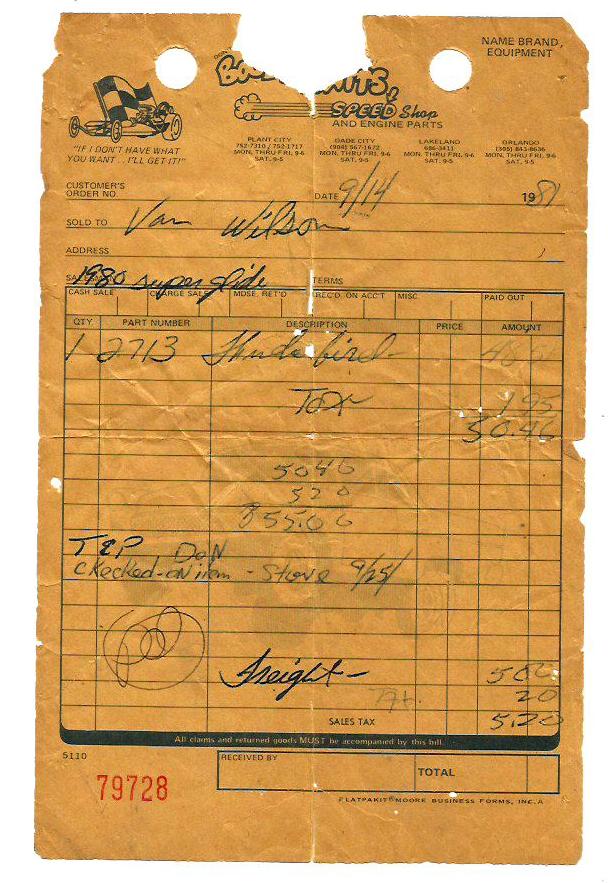 NAME BRAND,
EQUIPMENT
SPEED Shop
AND ENGINE PARTS
"IF I DON'T HAVE WHAT
YOU WANT . . I'LL GET IT!"
PLANT CITY
752-7310 / 752-1717
MON. THRU FRI. 9-6
SAT. 9-5
DADE CITY
(904) 567-1672
MON. THRU FRI. 9-6
SAT. 9-5
LAKELAND
686-3411
MON. THRU FRI. 9-6
SAT. 9-5
ORLANDO
(305) 843-8636
MON. THRU FRI. 9-6
SAT. 9-5
CUSTOMER'S
ORDER NO.
DATE 9/14 1981
SOLD TO Van Wilson
ADDRESS
1980 super glide TERMS
CASH SALE CHARGE SALE MDSE. RET'D REC'D. ON ACC'T MISC PAID OUT
QTY PART NUMBER DESCRIPTION PRICE AMOUNT
1 2713 Thunderbird -
Tax 1 95
50.46
5046
520
TEP DON
checked-on item - Steve 9/25/
Freight -
20
SALES TAX 5,20
All claims and returned goods MUST be accompanied by this bill.
5110
RECEIVED BY
TOTAL
79728
FLATPAKIT® MOORE BUSINESS FORMS, INC. A